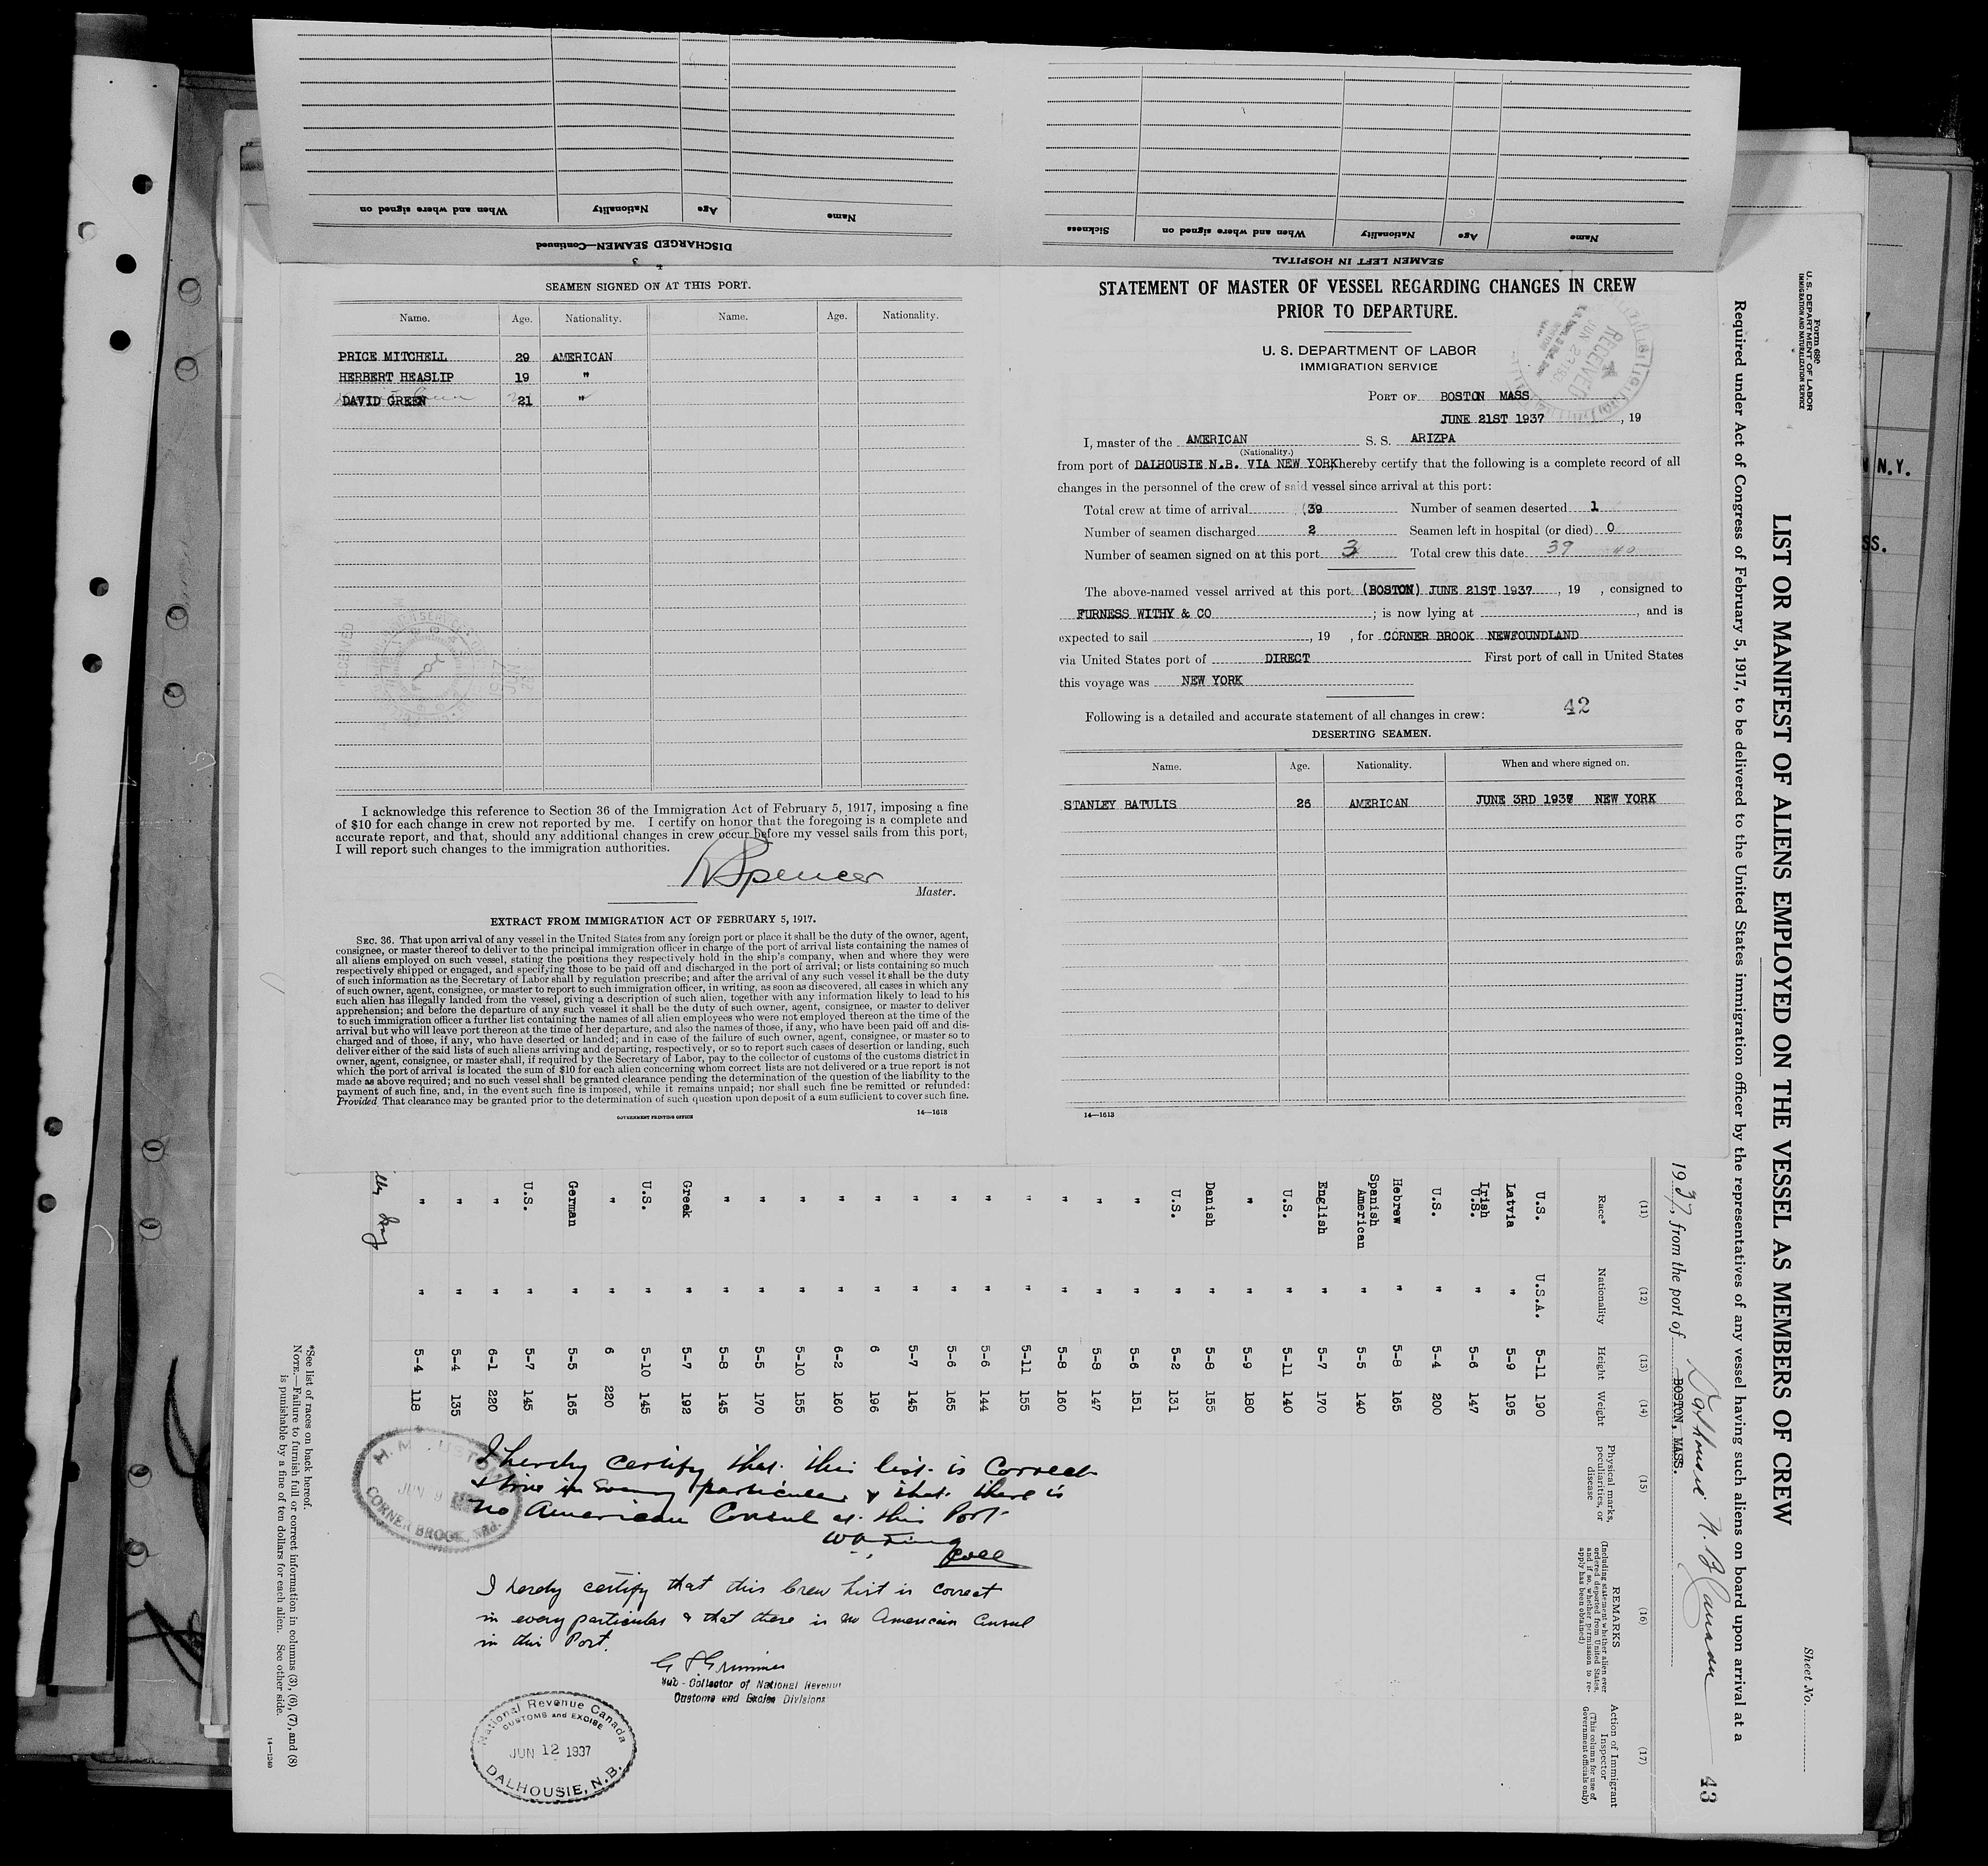 Name
Age
Nationality
When and where signed on
DISCHARGED SEAMEN—Continued
3
Name
Age
Nationality
When and where signed on
Sickness
SEAMEN LEFT IN HOSPITAL
4
SEAMEN SIGNED ON AT THIS PORT.
Name. Age. Nationality. Name. Age. Nationality.
PRICE MITCHELL 29 AMERICAN
HERBERT HEASLIP 19 "
DAVID GREEN 21 "
I acknowledge this reference to Section 36 of the Immigration Act of February 5, 1917, imposing a fine
of $10 for each change in crew not reported by me. I certify on honor that the foregoing is a complete and
accurate report, and that, should any additional changes in crew occur before my vessel sails from this port,
I will report such changes to the immigration authorities.
Spencer
Master.
EXTRACT FROM IMMIGRATION ACT OF FEBRUARY 5, 1917.
SEC. 36. That upon arrival of any vessel in the United States from any foreign port or place it shall be the duty of the owner, agent,
consignee, or master thereof to deliver to the principal immigration officer in charge of the port of arrival lists containing the names of
all aliens employed on such vessel, stating the positions they respectively hold in the ship's company, when and where they were
respectively shipped or engaged, and specifying those to be paid off and discharged in the port of arrival; or lists containing so much
of such information as the Secretary of Labor shall by regulation prescribe; and after the arrival of any such vessel it shall be the duty
of such owner, agent, consignee, or master to report to such immigration officer, in writing, as soon as discovered, all cases in which any
such alien has illegally landed from the vessel, giving a description of such alien, together with any information likely to lead to his
apprehension; and before the departure of any such vessel it shall be the duty of such owner, agent, consignee, or master to deliver
to such immigration officer a further list containing the names of all alien employees who were not employed thereon at the time of the
arrival but who will leave port thereon at the time of her departure, and also the names of those, if any, who have been paid off and dis-
charged and of those, if any, who have deserted or landed; and in case of the failure of such owner, agent, consignee, or master so to
deliver either of the said lists of such aliens arriving and departing, respectively, or so to report such cases of desertion or landing, such
owner, agent, consignee, or master shall, if required by the Secretary of Labor, pay to the collector of customs of the customs district in
which the port of arrival is located the sum of $10 for each alien concerning whom correct lists are not delivered or a true report is not
made as above required; and no such vessel shall be granted clearance pending the determination of the question of the liability to the
payment of such fine, and, in the event such fine is imposed, while it remains unpaid; nor shall such fine be remitted or refunded:
Provided That clearance may be granted prior to the determination of such question upon deposit of a sum sufficient to cover such fine.
GOVERNMENT PRINTING OFFICE 14—1613
STATEMENT OF MASTER OF VESSEL REGARDING CHANGES IN CREW
PRIOR TO DEPARTURE.
U. S. DEPARTMENT OF LABOR
IMMIGRATION SERVICE
RECEIVED
PORT OF BOSTON MASS
JUNE 21ST 1937, 19
I, master of the AMERICAN S. S. ARIZPA
(Nationality.)
from port of DALHOUSIE N.B. VIA NEW YORK, hereby certify that the following is a complete record of all
changes in the personnel of the crew of said vessel since arrival at this port:
Total crew at time of arrival 39 Number of seamen deserted 1
Number of seamen discharged 2 Seamen left in hospital (or died) 0
Number of seamen signed on at this port 3 Total crew this date 39 40
The above-named vessel arrived at this port (BOSTON) JUNE 21ST 1937, 19 , consigned to
FURNESS WITHY & CO; is now lying at , and is
expected to sail , 19 , for CORNER BROOK NEWFOUNDLAND
via United States port of DIRECT First port of call in United States
this voyage was NEW YORK
42
Following is a detailed and accurate statement of all changes in crew:
DESERTING SEAMEN.
Name. Age. Nationality. When and where signed on.
STANLEY BATULIS 26 AMERICAN JUNE 3RD 1937 NEW YORK
14—1613
N.Y.
SS.
Form 680
U.S. DEPARTMENT OF LABOR
IMMIGRATION AND NATURALIZATION SERVICE
Sheet No.
LIST OR MANIFEST OF ALIENS EMPLOYED ON THE VESSEL AS MEMBERS OF CREW
Required under Act of Congress of February 5, 1917, to be delivered to the United States immigration officer by the representatives of any vessel having such aliens on board upon arrival at a
1937, from the port of BOSTON, MASS. Dalhousie N. B. Canada
43
(11) (12) (13) (14) (15) (16) (17)
Race* Nationality Height Weight Physical marks, peculiarities, or disease
REMARKS
(Including statement whether alien ever ordered deported from United States, and if so, whether permission to re-apply has been obtained)
Action of Immigrant Inspector
(This column for use of Government officials only)
U.S. U.S.A. 5-11 190
Latvia " 5-9 195
Irish U.S. " 5-6 147
U.S. " 5-4 200
Hebrew " 5-8 165
Spanish American " 5-5 140
English " 5-7 170
U.S. " 5-11 140
" " 5-9 180
Danish " 5-8 155
U.S. " 5-2 131
" " 5-6 151
" " 5-8 147
" " 5-8 160
" " 5-11 155
" " 5-6 144
" " 5-6 165
" " 5-7 145
" " 6 196
" " 6-2 160
" " 5-10 155
" " 5-5 170
" " 5-8 145
Greek " 5-7 192
U.S. " 5-10 145
" " 6 220
German " 5-5 165
U.S. " 5-7 145
" " 6-1 220
" " 5-4 135
" " 5-4 118
I hereby certify that this list is correct
& true in every particular & that there is
no American Consul at this Port.
Coll
JUN 9
CORNER BROOK, Nfld.
I hereby certify that this Crew List is correct
in every particular & that there is no American Consul
in this Port.
Sub-Collector of National Revenue
Customs and Excise Divisions
National Revenue Canada
CUSTOMS and EXCISE
JUN 12 1937
DALHOUSIE, N.B.
*See list of races on back hereof.
NOTE.—Failure to furnish full or correct information in columns (3), (6), (7), and (8)
is punishable by a fine of ten dollars for each alien. See other side.
14—1240